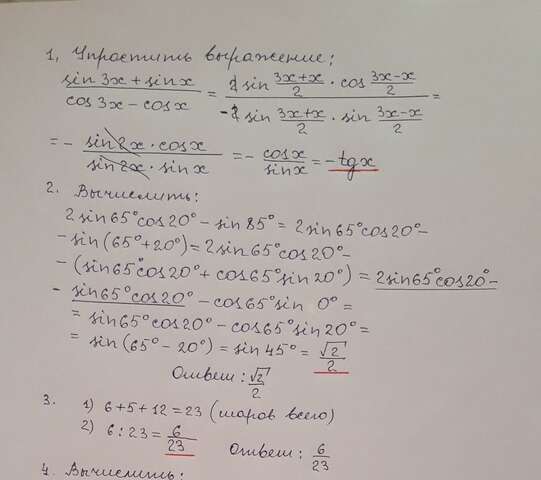 1, Упростить выражение:
(sin 3x + sin x)/(cos 3x - cos x) = (2 sin (3x+x)/2 · cos (3x-x)/2)/(-2 sin (3x+x)/2 · sin (3x-x)/2) =
= - (sin 2x · cos x)/(sin 2x · sin x) = - cos x/sin x = - tg x
2. Вычислить:
2 sin 65° cos 20° - sin 85° = 2 sin 65° cos 20° -
- sin (65° + 20°) = 2 sin 65° cos 20° -
- (sin 65° cos 20° + cos 65° sin 20°) = 2 sin 65° cos 20° -
- sin 65° cos 20° - cos 65° sin 0° =
= sin 65° cos 20° - cos 65° sin 20° =
= sin (65° - 20°) = sin 45° = √2/2
Ответ: √2/2
3. 1) 6 + 5 + 12 = 23 (шаров всего)
2) 6 : 23 = 6/23 Ответ: 6/23
4. Вычислить: